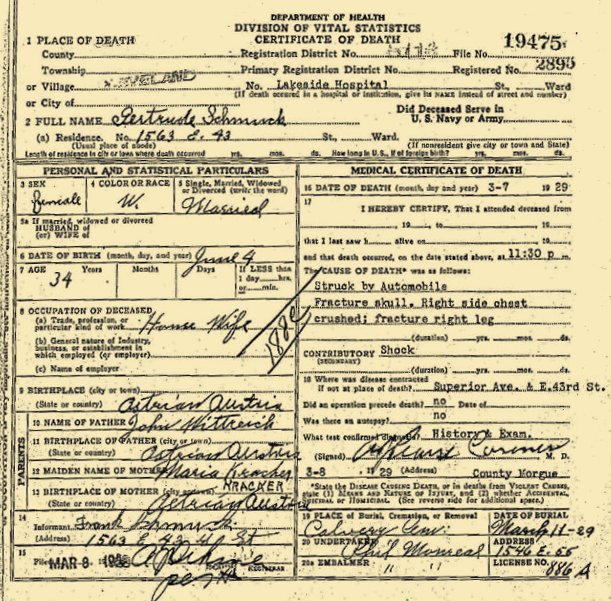 DEPARTMENT OF HEALTH
DIVISION OF VITAL STATISTICS
CERTIFICATE OF DEATH
1 PLACE OF DEATH
County
Registration District No. File No. 19475
Township Primary Registration District No. Registered No. 2895
or Village CLEVELAND No. Lakeside Hospital St., Ward
(If death occurred in a hospital or institution, give its NAME instead of street and number)
or City of
2 FULL NAME Gertrude Schmuck
Did Deceased Serve in
U. S. Navy or Army
(a) Residence. No. 1563 E. 43 St., Ward.
(Usual place of abode) (If nonresident give city or town and State)
Length of residence in city or town where death occurred yrs. mos. ds. How long in U.S., if of foreign birth? yrs. mos. ds.
PERSONAL AND STATISTICAL PARTICULARS
3 SEX
Female
4 COLOR OR RACE
W.
5 Single, Married, Widowed
or Divorced (write the word)
Married
5a If married, widowed or divorced
HUSBAND of
(or) WIFE of
6 DATE OF BIRTH (month, day, and year) June 4
7 AGE Years Months Days If LESS than
34
1 day hrs.
or min.
8 OCCUPATION OF DECEASED
(a) Trade, profession, or
particular kind of work House Wife
(b) General nature of Industry,
business, or establishment in
which employed (or employer)
(c) Name of employer
1880
9 BIRTHPLACE (city or town)
(State or country) Astrian Austria
PARENTS
10 NAME OF FATHER John Wittreich
11 BIRTHPLACE OF FATHER (city or town)
(State or country) Astrian Austria
12 MAIDEN NAME OF MOTHER Maria Kracher
KRACKER
13 BIRTHPLACE OF MOTHER (city or town)
(State or country) Austria
14
Informant Frank Schmuck
(Address) 1563 E. 43 St
15
Filed MAR 8 19 REGISTRAR
MEDICAL CERTIFICATE OF DEATH
16 DATE OF DEATH (month, day and year) 3-7 19 29
17
I HEREBY CERTIFY, That I attended deceased from
, 19 , to , 19
that I last saw h alive on , 19
and that death occurred, on the date stated above, at 11:30 p m.
The CAUSE OF DEATH* was as follows:
Struck by Automobile
Fracture skull. Right side chest
crushed; fracture right leg
(duration) yrs. mos. ds.
CONTRIBUTORY Shock
(SECONDARY)
(duration) yrs. mos. ds.
18 Where was disease contracted
if not at place of death? Superior Ave. & E.43rd St.
Did an operation precede death? no Date of
Was there an autopsy? no
What test confirmed diagnosis? History & Exam.
(Signed) Coroner M. D.
3-8 , 19 29 (Address) County Morgue
*State the DISEASE CAUSING DEATH, or in deaths from VIOLENT CAUSES,
state (1) MEANS AND NATURE OF INJURY, and (2) whether ACCIDENTAL,
SUICIDAL or HOMICIDAL. (See reverse side for additional space.)
19 PLACE OF Burial, Cremation, or Removal
Calvery Cem.
DATE OF BURIAL
March 11-29
20 UNDERTAKER
Phil Monreal
ADDRESS
1546 E. 55
20a EMBALMER " "
LICENSE NO.
886 A